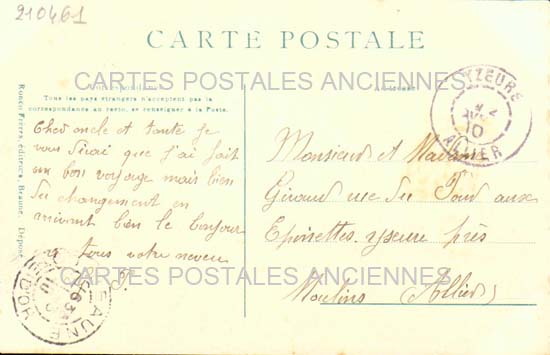 210461
CARTE POSTALE
CARTES POSTALES ANCIENNES
Tous les pays étrangers n'acceptent pas la
correspondance au recto, se renseigner à la Poste.
Ronco Frères, éditeurs, Beaune. Déposé
YZEURE
ALLIER
10
Cher oncle et tante je
vous dirai que j'ai fait
un bon voyage mais bien
du changement en
arrivant bien le bonjour
à tous votre neveu
Monsieur et Madame
Giraud rue du Pond aux
Epinettes yseure près
Moulins Allier
CARTES POSTALES ANCIENNES
BEAUNE